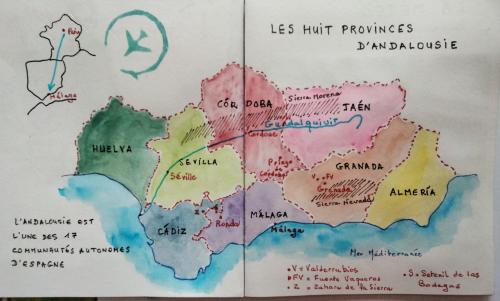 LES HUIT PROVINCES
D'ANDALOUSIE
Paris
Málaga
CÓRDOBA
Sierra Morena
JAÉN
Guadalquivir
Cordoue
HUELVA
SEVILLA
Séville
Priego de
Cordoba
V. FV
GRANADA
Grenade
Sierra Nevada
ALMERÍA
CÁDIZ
Z
S
Ronda
MÁLAGA
Málaga
Mer Méditerranée
L'ANDALOUSIE EST
L'UNE DES 17
COMMUNAUTÉS AUTONOMES
D'ESPAGNE
V = Valderrubios
FV = Fuente Vaqueros
Z = Zahara de la Sierra
S = Setenil de las
Bodegas